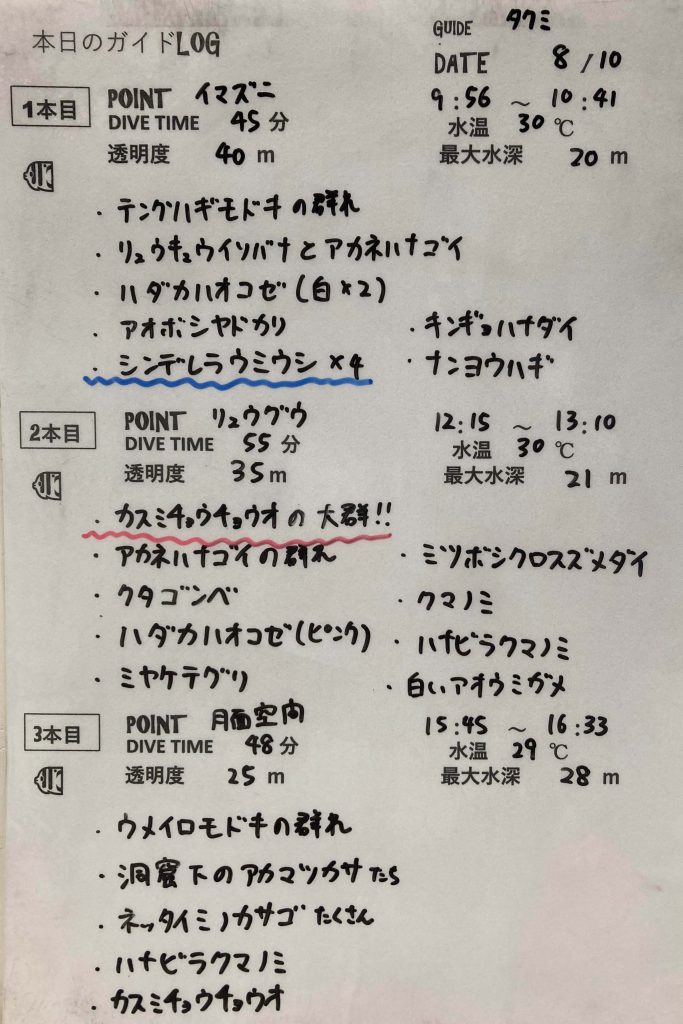 本日のガイドLOG
GUIDE タクミ
DATE 8/10
1本目 POINT イマズニ 9:56 ～ 10:41
DIVE TIME 45分 水温 30℃
透明度 40m 最大水深 20m
・テングハギモドキの群れ
・リュウキュウイソバナとアカネハナゴイ
・ハダカハオコゼ(白×2)
・アオボシヤドカリ ・キンギョハナダイ
・シンデレラウミウシ×4 ・ナンヨウハギ
2本目 POINT リュウグウ 12:15 ～ 13:10
DIVE TIME 55分 水温 30℃
透明度 35m 最大水深 21m
・カスミチョウチョウオの大群!!
・アカネハナゴイの群れ ・ミツボシクロスズメダイ
・クタゴンベ ・クマノミ
・ハダカハオコゼ(ピンク) ・ハナビラクマノミ
・ミヤケテグリ ・白いアオウミガメ
3本目 POINT 月面空間 15:45 ～ 16:33
DIVE TIME 48分 水温 29℃
透明度 25m 最大水深 28m
・ウメイロモドキの群れ
・洞窟下のアカマツカサたち
・ネッタイミノカサゴたくさん
・ハナビラクマノミ
・カスミチョウチョウオ